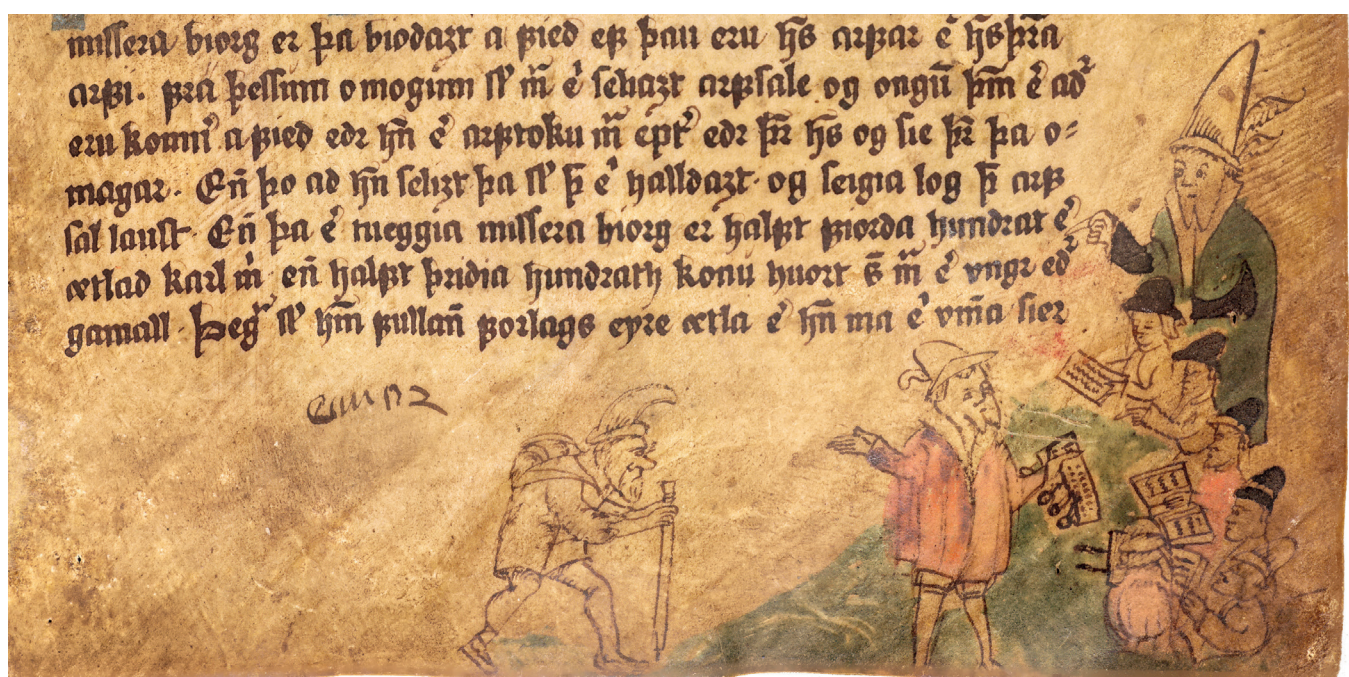 missera biorg er þa biodazt a ꝼied eꝼ þau eru h̅s arꝼar e᷑ h̅s ꝼra
arꝼi. ꝼra þessum omogum sl̅ m̅ e᷑ seliazt arꝼsale og ongu̅ þm̅ e᷑ ad᷑
eru komn᷑ a ꝼied edr h̅n e᷑ arꝼtoku m̅ ept᷑ edr þr̅ h̅s og sie þr̅ þa o⸗
magar. En̅ þo ad h̅n selizt þa sl̅ þ̅ e᷑ halldazt. og seigia log þ̅ arꝼ
sal laust. En̅ þa e᷑ tueggia missera biorg er halꝼt ꝼiorda hundrat e᷑
ætlad karl m̅ en̅ halꝼt þridia hundrath konu huort s̅ m̅ e᷑ vngr ed᷑
gamall. Þeg᷑ sl̅ hm̅ ꝼullan̅ ꝼorlags eyre ætla e᷑ h̅n ma e᷑ vin̅a sier